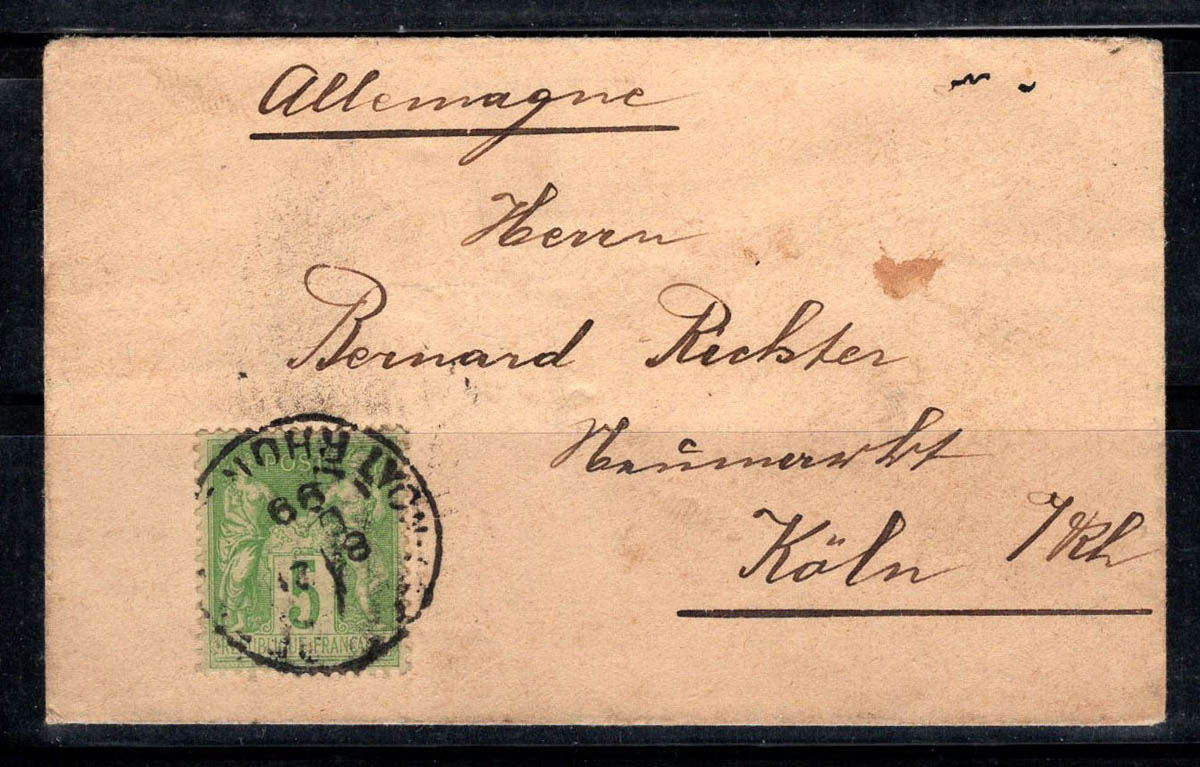 Allemagne
Herrn
Bernard Richter
Neumarkt
Köln a/Rh
POSTES
5
REPUBLIQUE FRANCAISE
LYON RHONE
99